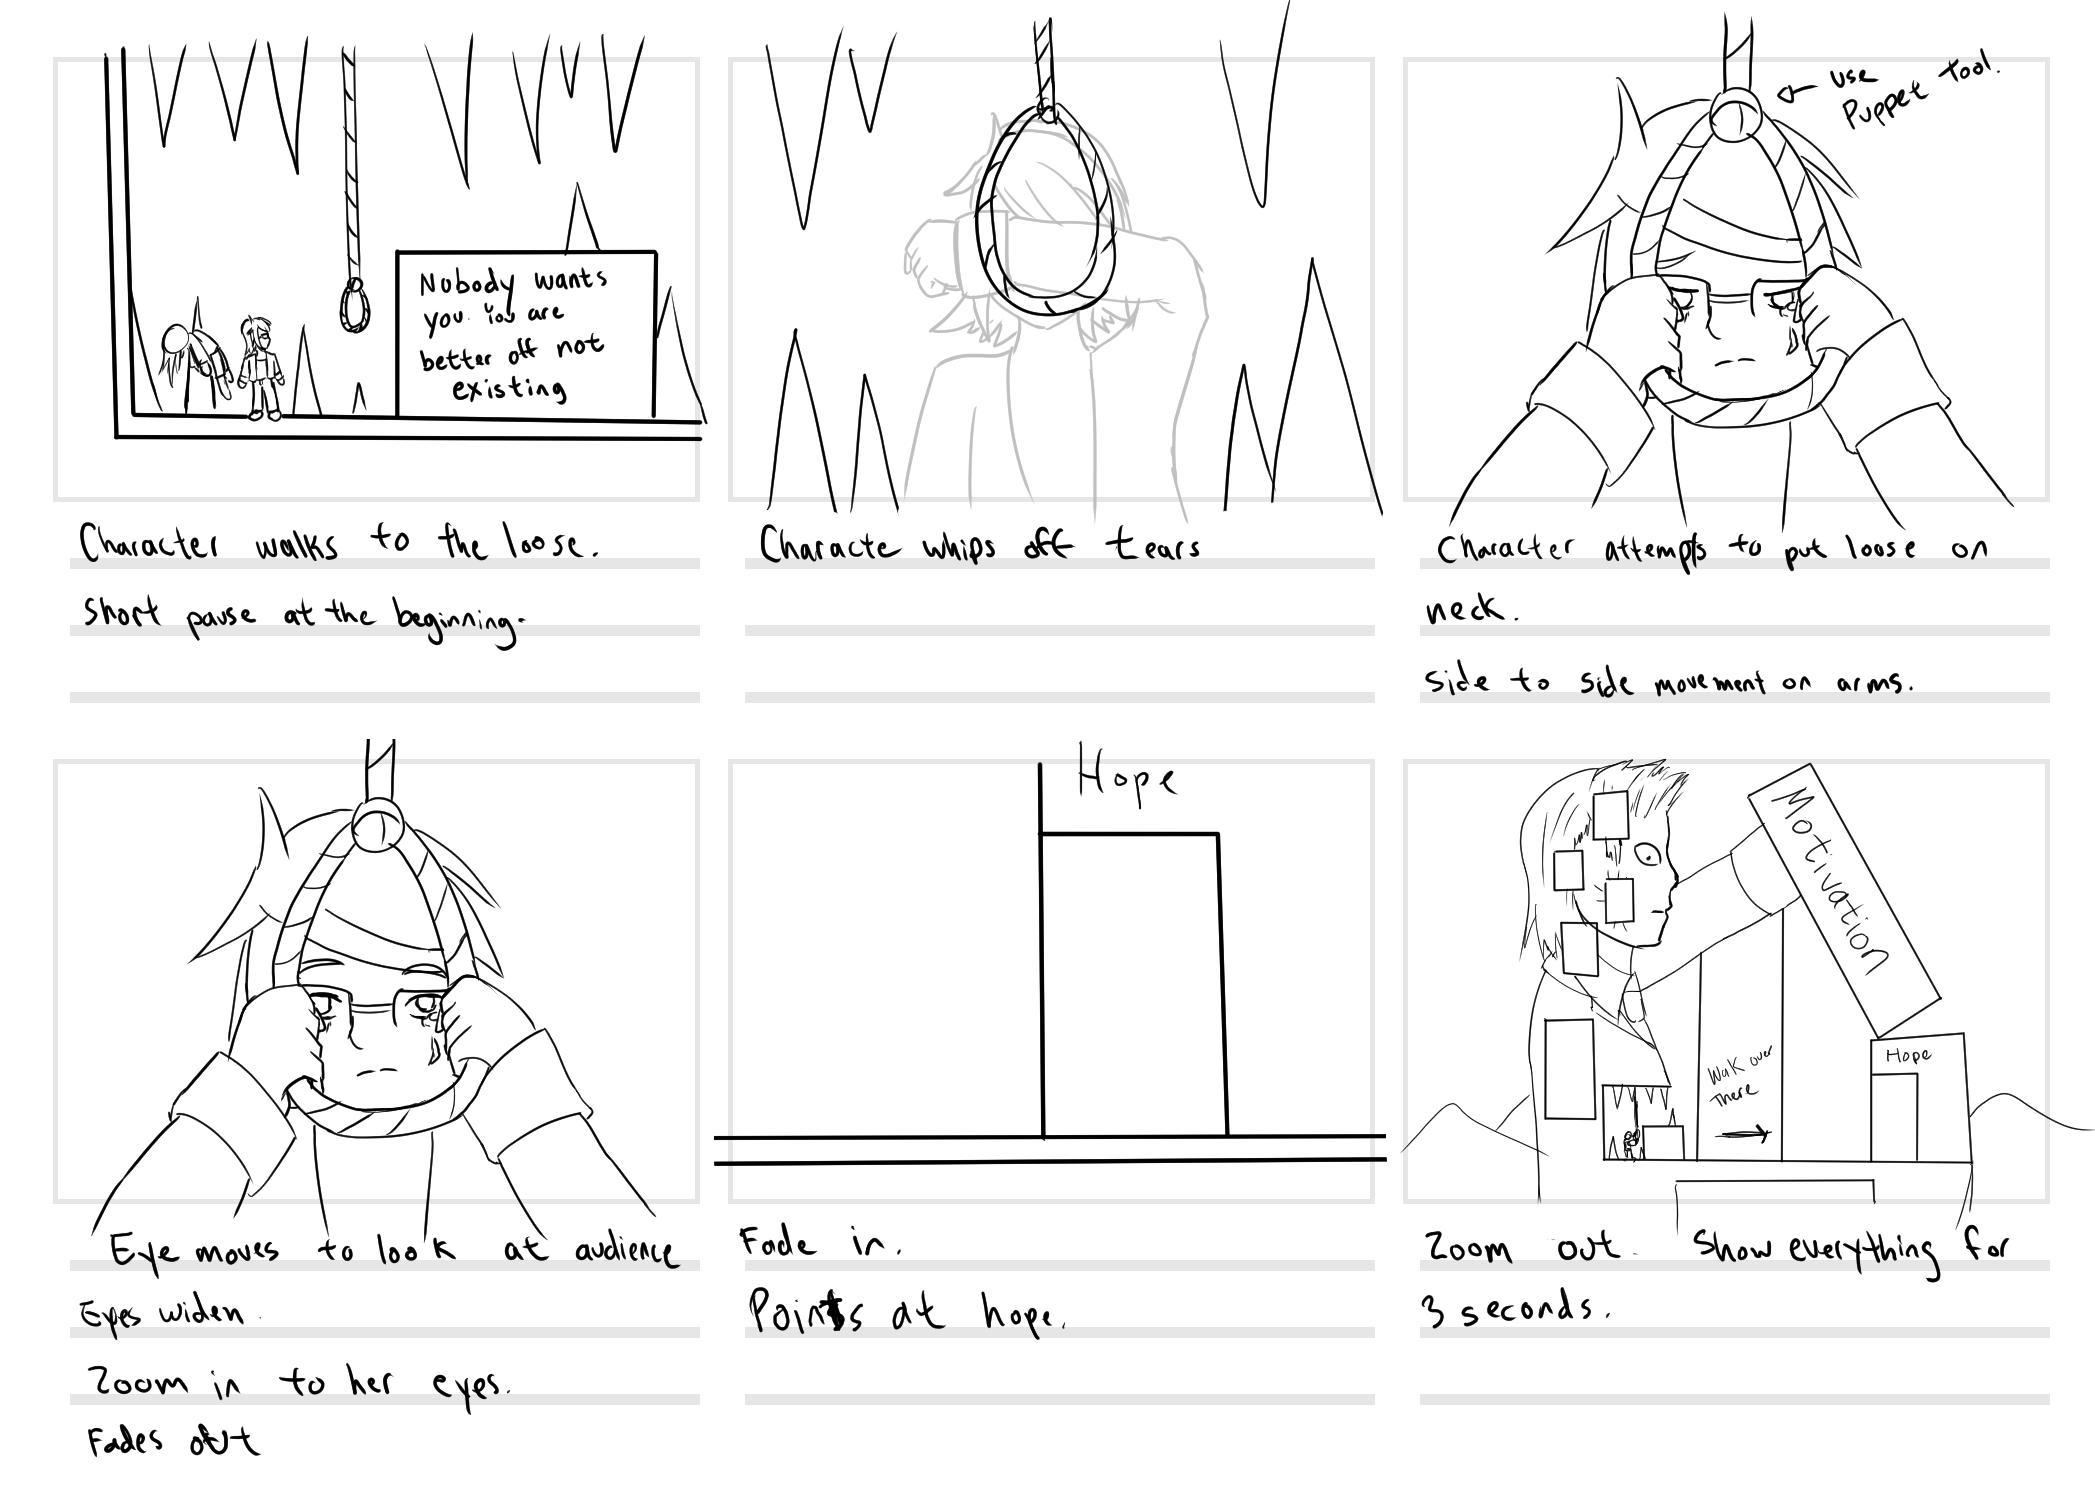 Nobody wants
you. You are
better off not
existing
Character walks to the loose.
Short pause at the beginning.
Characte whips off tears
use
Puppet Tool.
Character attempts to put loose on
neck.
side to side movement on arms.
Eye moves to look at audience
Eyes widen.
Zoom in to her eyes.
Fades out
Hope
Fade in.
Points at hope.
Motivation
Hope
Walk over
There
Zoom out. Show everything for
3 seconds.